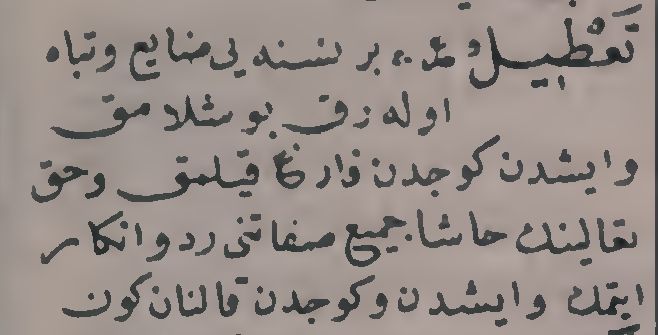 تَعْطِيلْ ع بر نسنه يى ضايع وتباه
اوله رق بوشلامق
وايشدن كوجدن فارغ قيلمق وحق
تعالينك حاشا جميع صفاتنى رد وانكار
ايتمك وايشدن وكوجدن قالنان كون